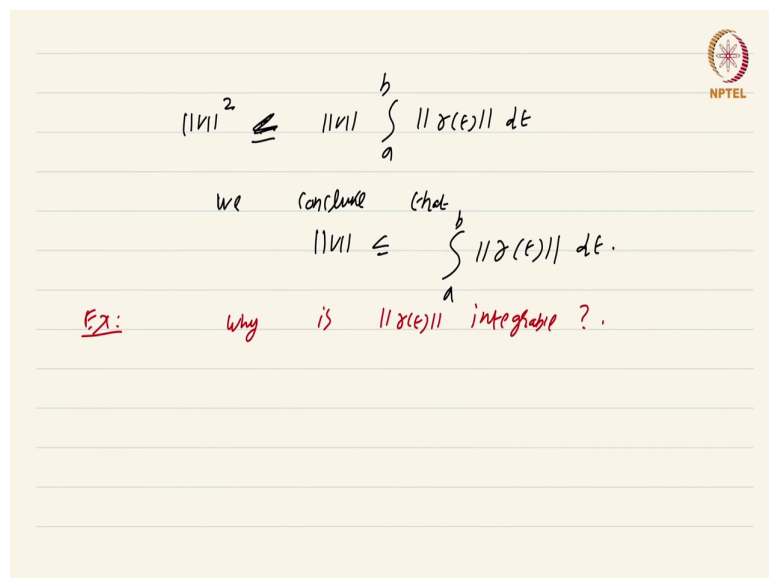 NPTEL
||v||² ≤ ||v|| ∫ₐᵇ ||γ(t)|| dt
we conclude that
||v|| ≤ ∫ₐᵇ ||γ(t)|| dt.
Ex: Why is ||γ(t)|| integrable ?.